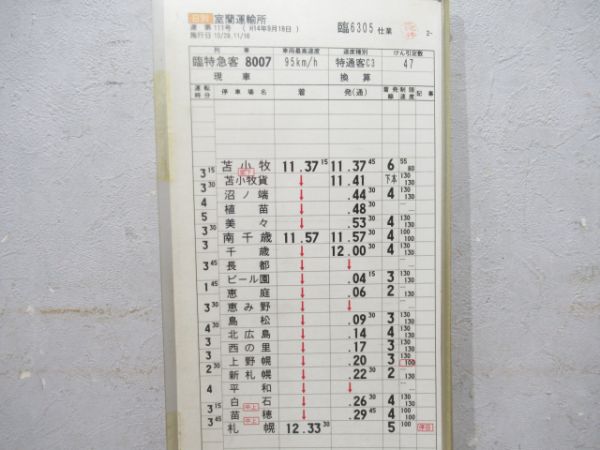 室蘭運輸所
運 第 111号 ( H14年9月18日 )
施行日 10/28,11/16
臨6305 仕業
2-
列 車 車両最高速度 速度種別 けん引定数
臨特急客 8007 95km/h 特通客C3 47
現 車 換 算
運転時分 停 車 場 名 着 発(通) 着発線 制限速度 記事
苫 小 牧 11.37 15 11.37 45 6 55 80
3 15
苫小牧貨 ↓ 11.41 下本 130 130
3 30
沼 ノ 端 ↓ .44 30 4 130 130
4
植 苗 ↓ .48 30
5
美 々 ↓ .53 30 4 130 130
3 30
南 千 歳 11.57 11.57 30 4 100 100
3
千 歳 ↓ 12.00 30 4 130 130
3
長 都 ↓ ↓
3 45
ビール園 ↓ .04 15 3 130 130
1 45
恵 庭 ↓ .06 2 130 130
恵 み 野 ↓ ↓
3 30
島 松 ↓ .09 30 3 130 130
4 30
北 広 島 ↓ .14 4 130 130
3
西 の 里 ↓ .17 3 130 130
3
上 野 幌 ↓ .20 3 130 100
2 30
新 札 幌 ↓ .22 30 2 130 130
4
平 和 ↓ ↓
白 石 ↓ .26 30 4 130 130
3 15 中上
苗 穂 ↓ .29 45 4 100 130
3 45 中上
札 幌 12.33 30 5 100